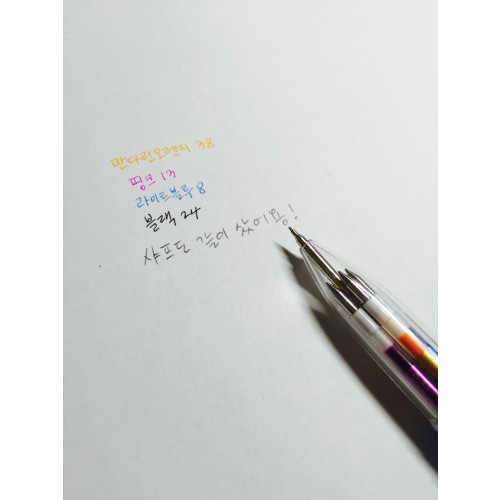 만다린오렌지 38
핑크 13
라이트블루 8
블랙 24
샤프도 같이 샀어용!